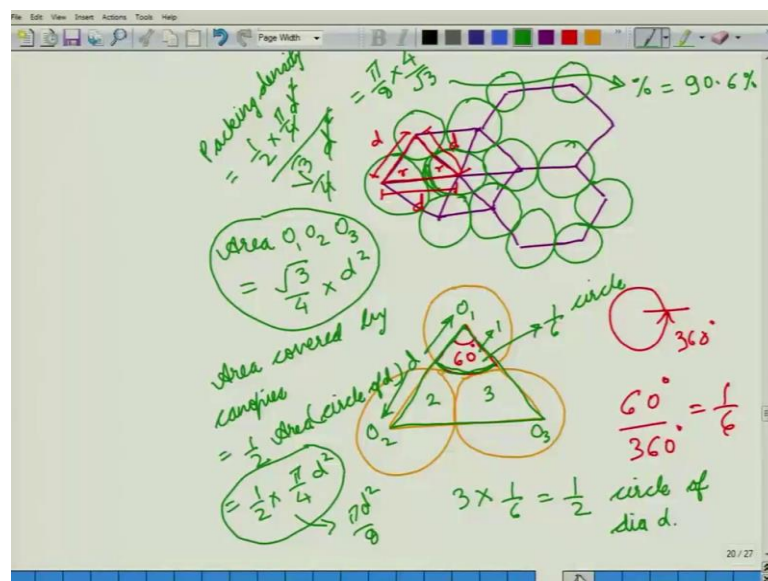 File Edit View Insert Actions Tools Help
Page Width
Packing density
= 1/2 × π/4 d²
√3/4 d²
= π/8 × 4/√3
% = 90.6%
d
d
r
r
d
Area O₁O₂O₃
= √3/4 × d²
Area covered by
canopies
= 1/2 Area(circle of d)
= 1/2 × π/4 d²
πd²/8
O₁
1
60°
1/6 circle
d
2
3
O₂
O₃
360°
60°/360° = 1/6
3 × 1/6 = 1/2 circle of
dia d.
20 / 27